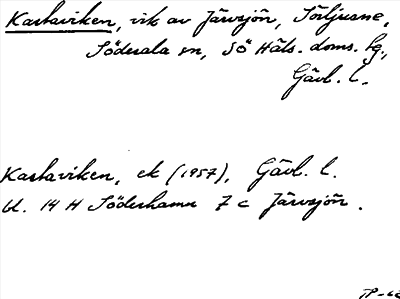 Kastaviken, vik av Järvsjön, Sörljusne,
Söderala sn, SÖ Häls. doms. fg.,
Gävl. l.
Kastaviken, ek (1957), Gävl. l.
bl. 14 H Söderhamn 7 c Järvsjön.